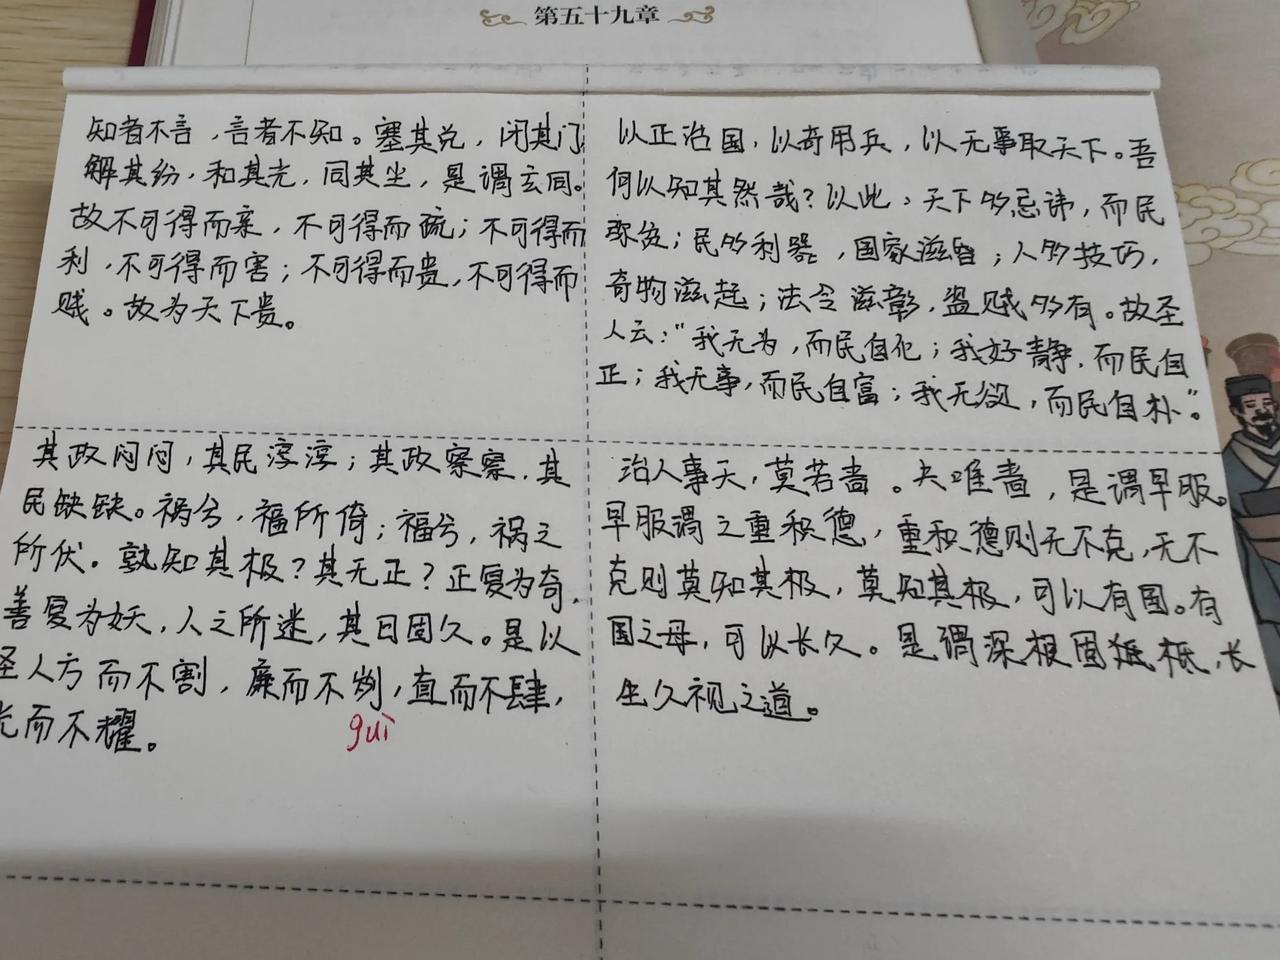 第五十九章
知者不言，言者不知。塞其兑，闭其门
解其纷，和其光，同其尘，是谓玄同。
故不可得而亲，不可得而疏；不可得而
利，不可得而害；不可得而贵，不可得而
贱。故为天下贵。
以正治国，以奇用兵，以无事取天下。吾
何以知其然哉？以此：天下多忌讳，而民
弥贫；民多利器，国家滋昏；人多技巧，
奇物滋起；法令滋彰，盗贼多有。故圣
人云：“我无为，而民自化；我好静，而民自
正；我无事，而民自富；我无欲，而民自朴”。
其政闷闷，其民淳淳；其政察察，其
民缺缺。祸兮，福所倚；福兮，祸之
所伏。孰知其极？其无正？正复为奇，
善复为妖，人之所迷，其日固久。是以
圣人方而不割，廉而不刿，直而不肆，
光而不耀。
guì
治人事天，莫若啬。夫唯啬，是谓早服。
早服谓之重积德，重积德则无不克，无不
克则莫知其极，莫知其极，可以有国。有
国之母，可以长久。是谓深根固柢，长
生久视之道。